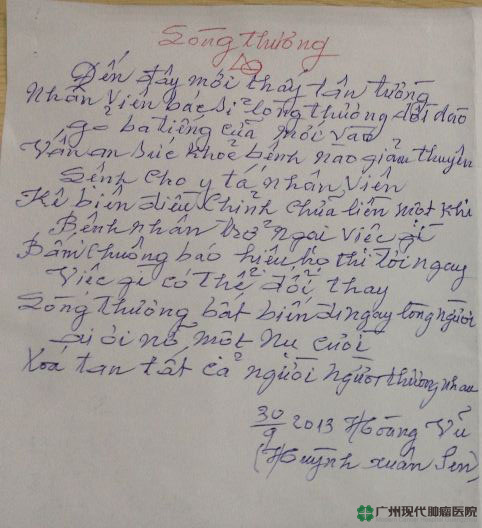 Sóng thương
Đến đây mới thấy tận tường
Nhân viên bác sĩ lòng thương dồi dào
ba tiếng của mới vào
Vấn an sức khoẻ bệnh nào giảm thuyên
Lệnh cho y tá nhân viên
Kê biên điều chỉnh chữa liền một khi
Bệnh nhân trở ngại việc gì
Bấm chuông báo hiệu họ thì tới ngay
Việc gì có thể đổi thay
Sóng thương bất biến lòng người
nở một nụ cười
Xoá tan tất cả người người thương nhau
30/9 2013 Hoàng Vũ
(Huỳnh Xuân Sen)
广州现代肿瘤医院